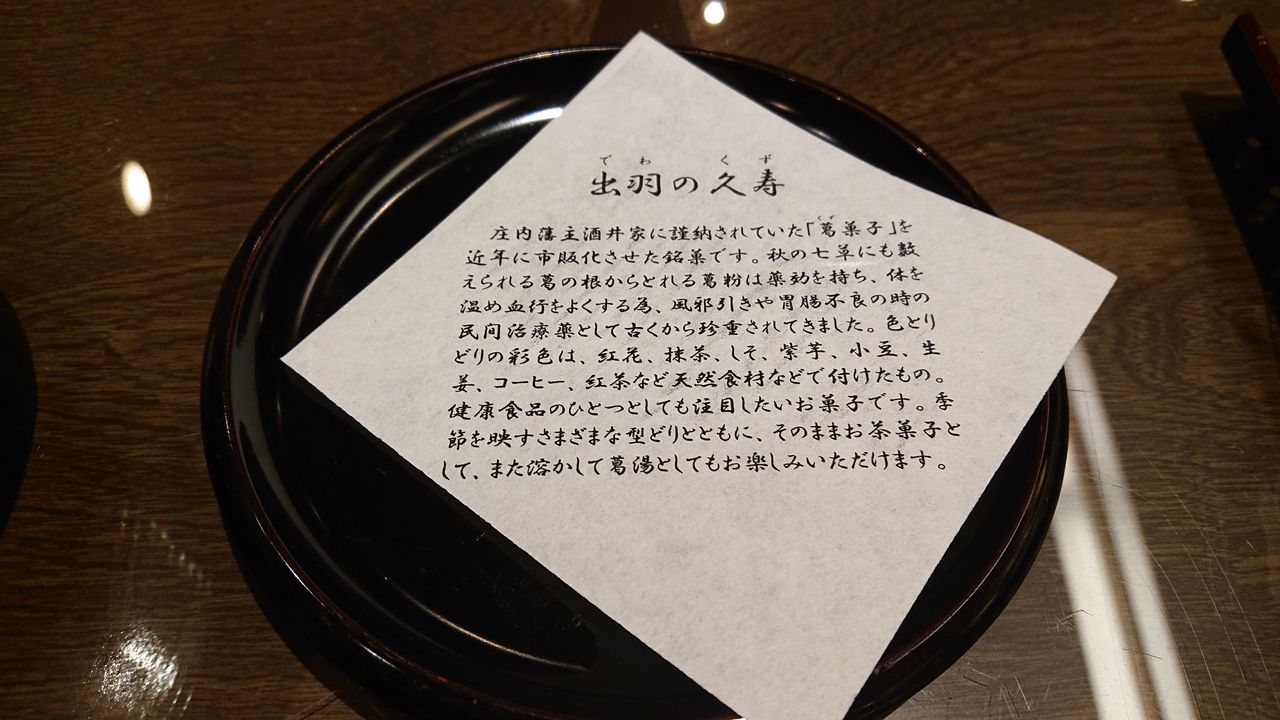 でわ くず
出羽の久寿
くず
庄内藩主酒井家に謹納されていた「葛菓子」を
近年に市販化させた銘菓です。秋の七草にも数
えられる葛の根からとれる葛粉は薬効を持ち、体を
温め血行をよくする為、風邪引きや胃腸不良の時の
民間治療薬として古くから珍重されてきました。色とり
どりの彩色は、紅花、抹茶、しそ、紫芋、小豆、生
姜、コーヒー、紅茶など天然食材などで付けたもの。
健康食品のひとつとしても注目したいお菓子です。季
節を映すさまざまな型どりとともに、そのままお茶菓子と
して、また溶かして葛湯としてもお楽しみいただけます。